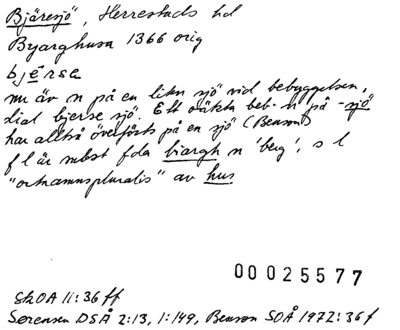 Bjäresjö, Herrestads hd
Byarghusa 1366 orig
bjérsa
nu äv n på en liten sjö vid bebyggelsen,
dial bjerse sjö. Ett oäkta beb-n på -sjö
har alltså överförts på en sjö (Benson)
f l är subst fda biargh n 'berg', s l
"ortnamnspluralis" av hus
00025577
SkOA 11:36 ff
Sørensen DSÅ 2:13, 1:149, Benson SOÅ 1972:36 f